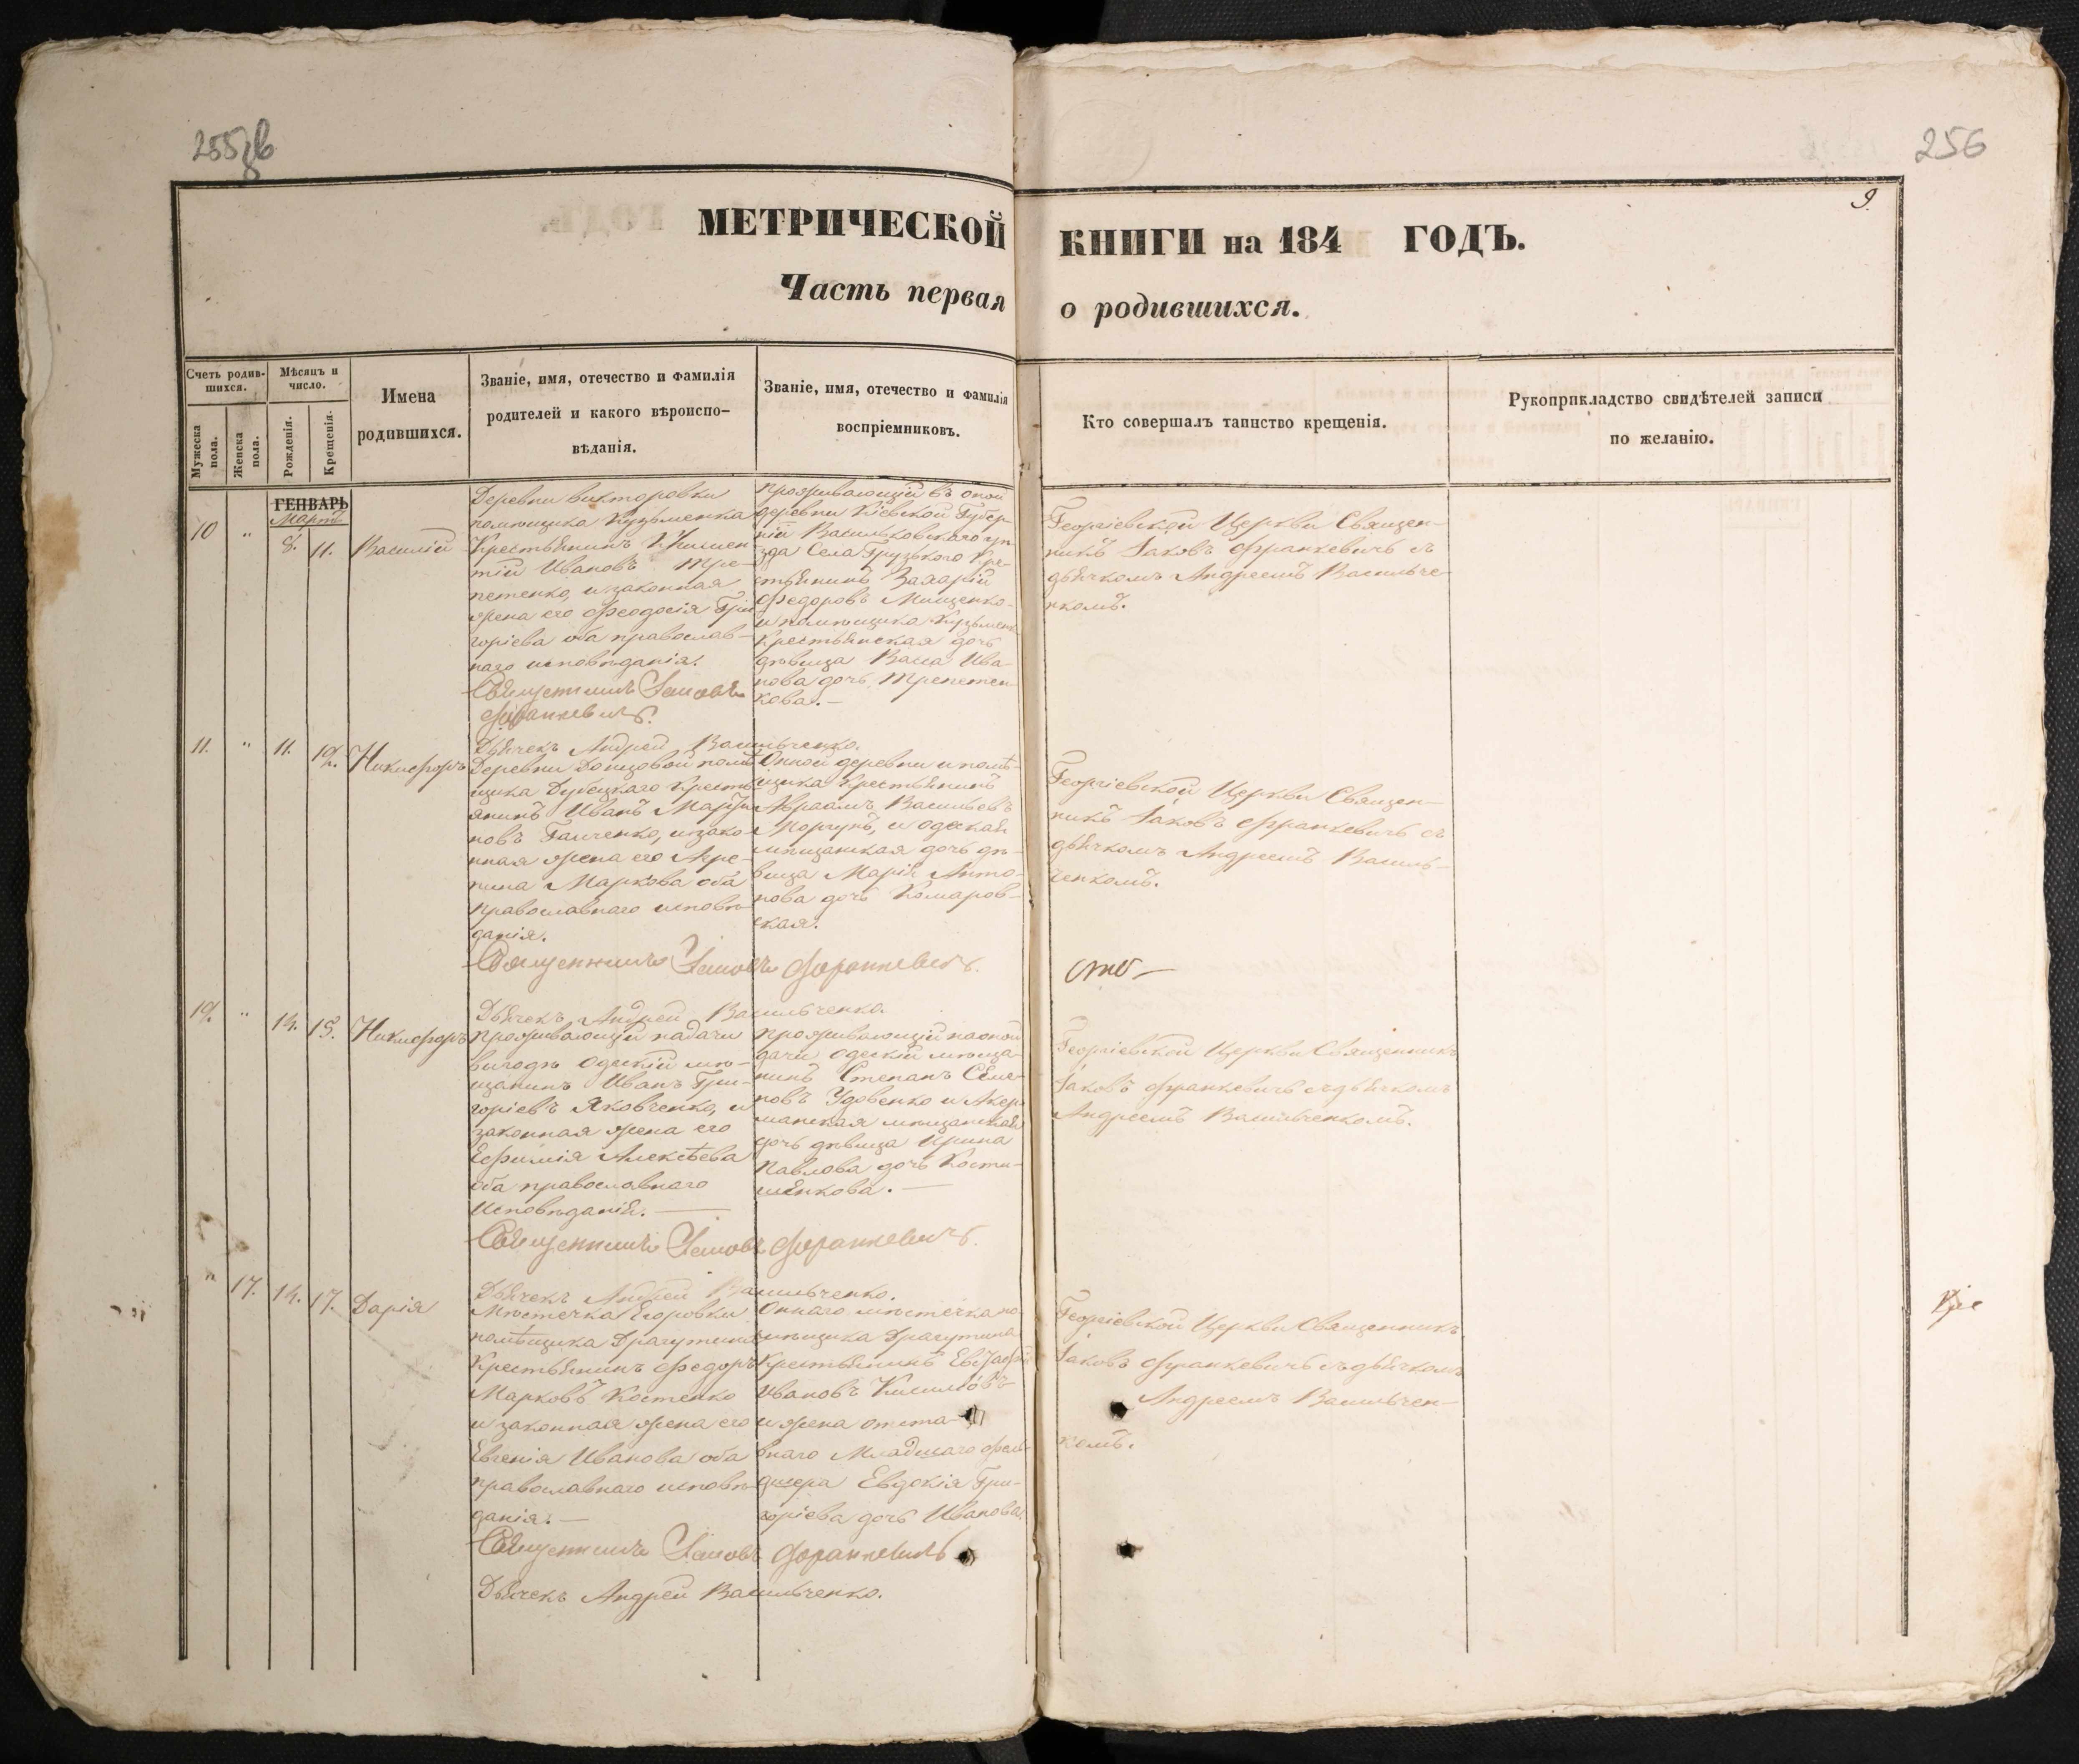 255 об
256
9.
МЕТРИЧЕСКОЙ КНИГИ на 184 ГОДЪ.
Часть первая о родившихся.
Счетъ родившихся.
Мужеска пола.
Женска пола.
Мѣсяцъ и число.
Рожденія.
Крещенія.
Имена родившихся.
Званіе, имя, отечество и фамилія
родителей и какого вѣроиспо-
вѣданія.
Званіе, имя, отечество и фамилія
воспріемниковъ.
Кто совершалъ таинство крещенія.
Рукоприкладство свидѣтелей записи
по желанію.
ГЕНВАРЬ
Мартъ
10 " 8. 11. Василій
Деревни Викторовки
помѣщика Кузьменка
Крестьянинъ
Ивановъ Тре-
петенко, и законная
жена его Феодосія Гри
горіева оба православ-
наго исповѣданія.
Проживающій въ оной
деревни Кіевской Губер
ніи Васильковскаго уѣ
зда Села Грузького Кре-
стьянинъ Захарій
Федоровъ Мищенко
и помѣщика Кузьмен
Крестьянская дочь
дѣвица Васса Ива
нова дочь Трепетен
кова.—
Георгіевской Церкви Священ-
никъ Іаковъ Франкевичъ съ
дьячкомъ Андреемъ Васильче
нкомъ.
Священникъ Іаковъ
Франкевичъ.
Дьячекъ Андрей Васильченко.
11. " 11. 12. Никифоръ
Деревни Донцовой помѣ
щика Дубецкаго Кресть
янинъ Иванъ Марты
новъ Ганченко, и зако-
нная жена его Агре-
пина Маркова оба
православнаго исповѣ
данія.
Онной деревни и помѣ-
щика Крестьянинъ
Авраамъ Васильевъ
Моргунъ, и одеская
мѣщанская дочь дѣ-
вица Марія Анто-
нова дочь Комаров-
ская.
Георгіевской Церкви Священ-
никъ Іаковъ Франкевичъ съ
дьячкомъ Андреемъ Василь-
ченкомъ.
Священникъ Іаковъ Франкевичъ.
Дьячекъ Андрей Васильченко.
12. " 14. 15. Никифоръ
Проживающій на дачи
одескій мѣ-
щанинъ Иванъ Гри-
горіевъ Яковченко, и
законная жена его
Евфимія Алексѣева
оба православнаго
Исповѣданія.—
Проживающій на оной
дачи одескій мѣща-
нинъ Степанъ Семе-
новъ Удовенко и Акер
манская мѣщанская
дочь дѣвица Ирина
Павлова дочь Кости-
шенкова.—
Георгіевской Церкви Священникъ
Іаковъ Франкевичъ съ дьячкомъ
Андреемъ Васильченкомъ.
Священникъ Іаковъ Франкевичъ.
Дьячекъ Андрей Васильченко.
" 17. 14. 17. Дарія
Мѣстечка Егоровки
помѣщика Драгутина
Крестьянинъ Федоръ
Марковъ Костенко
и законная жена его
Евгенія Иванова оба
православнаго исповѣ
данія.—
Оннаго мѣстечка по
мѣщика Драгутина
Крестьянинъ
Ивановъ
и жена отста-
внаго Младшаго фель
дшера Евдокія Гри-
горіева дочь Иванова.
Георгіевской Церкви Священникъ
Іаковъ Франкевичъ съ дьячкомъ
Андреемъ Васильчен-
комъ.
Священникъ Іаковъ Франкевичъ
Дьячекъ Андрей Васильченко.